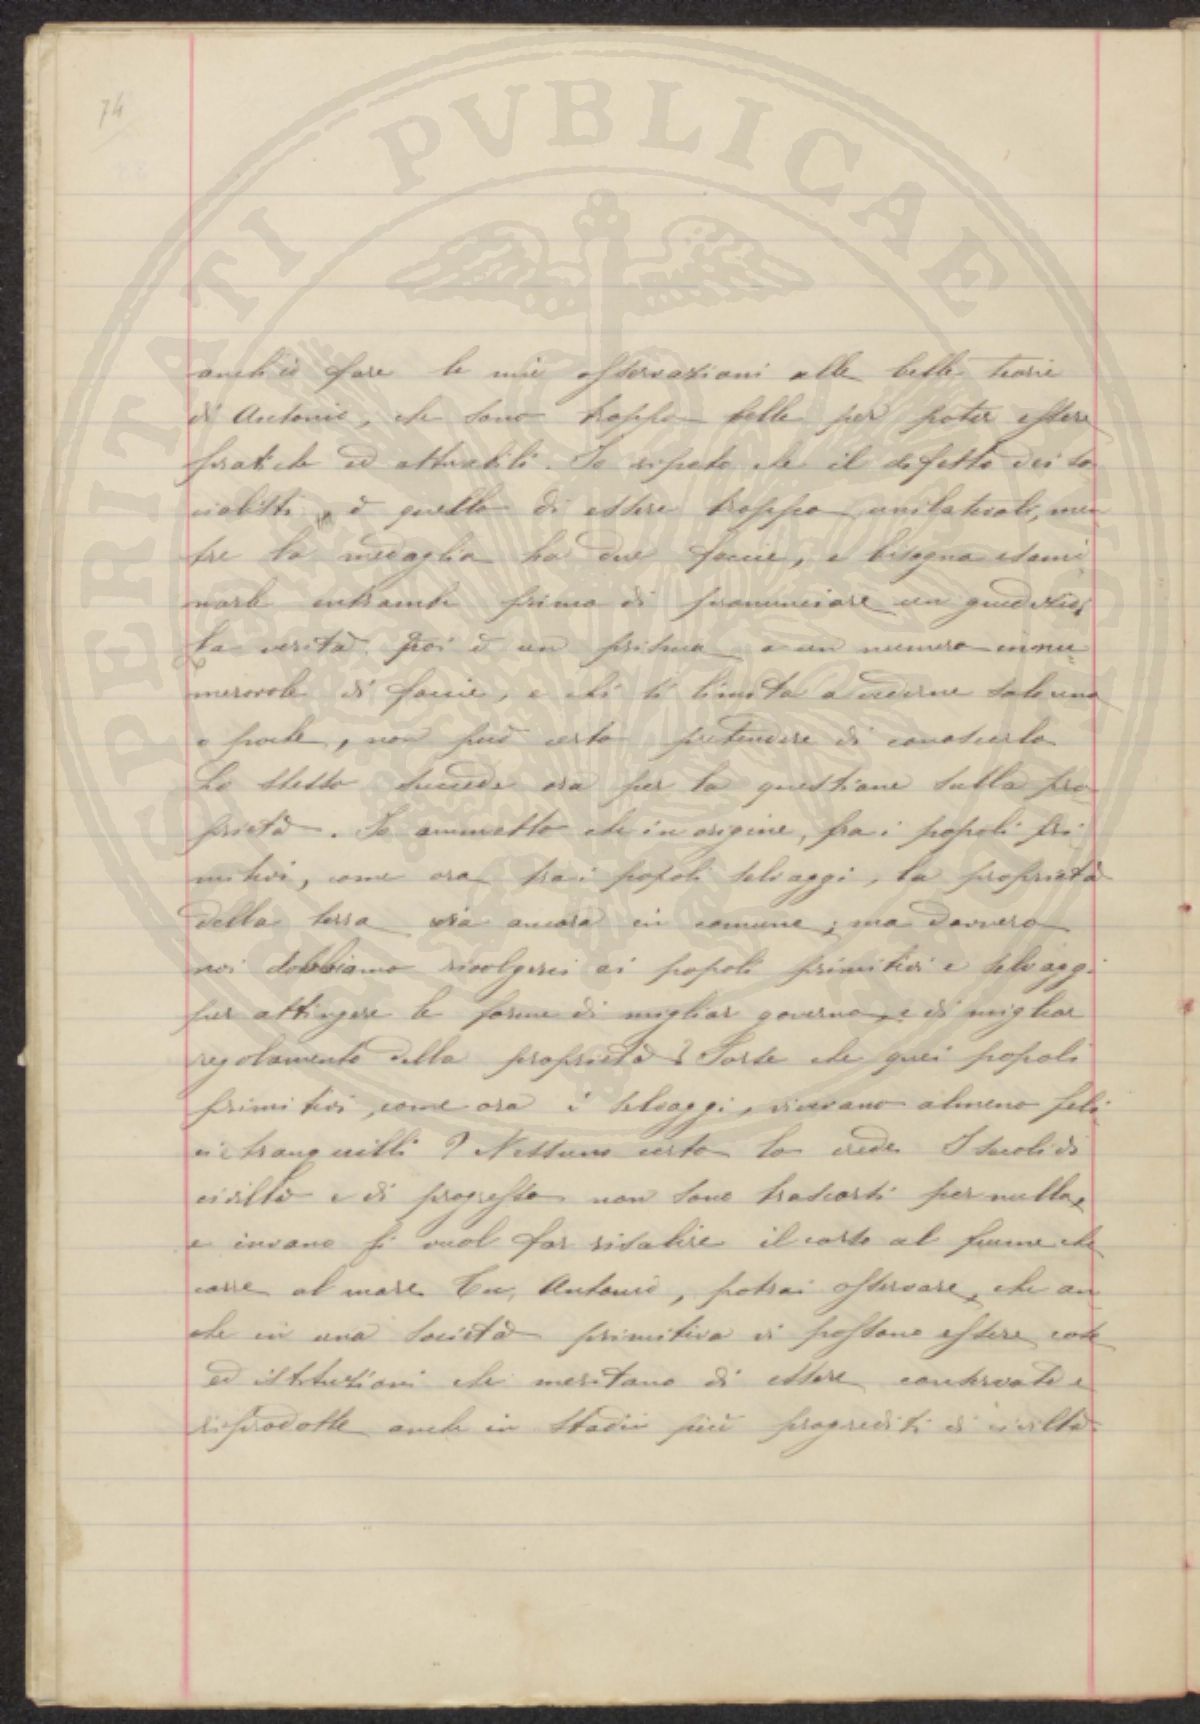 74
PROSPERITATI PVBLICAE
anch'io fare le mie osservazioni alle belle teorie
di Antonio, che sono troppo belle per poter essere
pratiche ed attuabili. Io ripeto che il difetto dei so
cialisti, è quello di essere troppo unilaterali, men
tre la medaglia ha due faccie, e bisogna esami
narle entrambe prima di pronunciare un giudizio,
La verità poi è un prisma a un numero innu
merevole di faccie, e chi si limita a vederne sole una
o poche, non può certo pretendere di conoscerla
Lo stesso succede ora per la questione sulla pro
prietà. Io ammetto che in origine, fra i popoli pri
mitivi, come ora fra i popoli selvaggi, la proprietà
della terra sia ancora in comune; ma davvero
noi dobbiamo rivolgerci ai popoli primitivi e selvaggi
per attingere le forme di miglior governo, e di miglior
regolamento della proprietà? Forse che quei popoli
primitivi, come ora i selvaggi, vivevano almeno feli
ci e tranquilli? Nessuno certo lo crede I secoli di
civiltà e di progresso non sono trascorsi per nulla,
e invano si vuol far risalire il corso al fiume che
corre al mare. Tu, Antonio, potrai osservare, che an
che in una società primitiva vi possono essere cose
ed istituzioni che meritano di essere conservate e
riprodotte anche in stadii più progrediti di civiltà